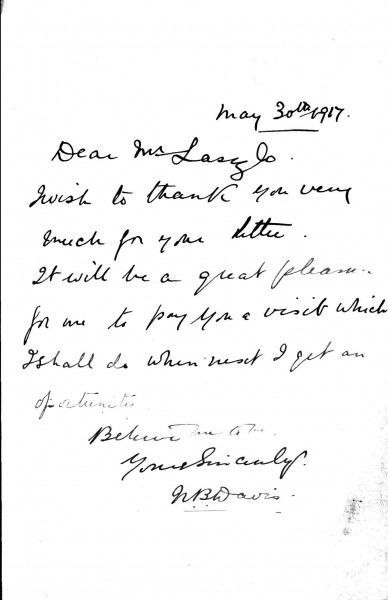 May 30th 1917.
Dear Mrs Laszlo.
I wish to thank you very
much for your letter.
It will be a great pleasure
for me to pay you a visit which
I shall do when next I get an
oportunitie
Believe me to be
Yours Sincerely.
N.B. Davis.